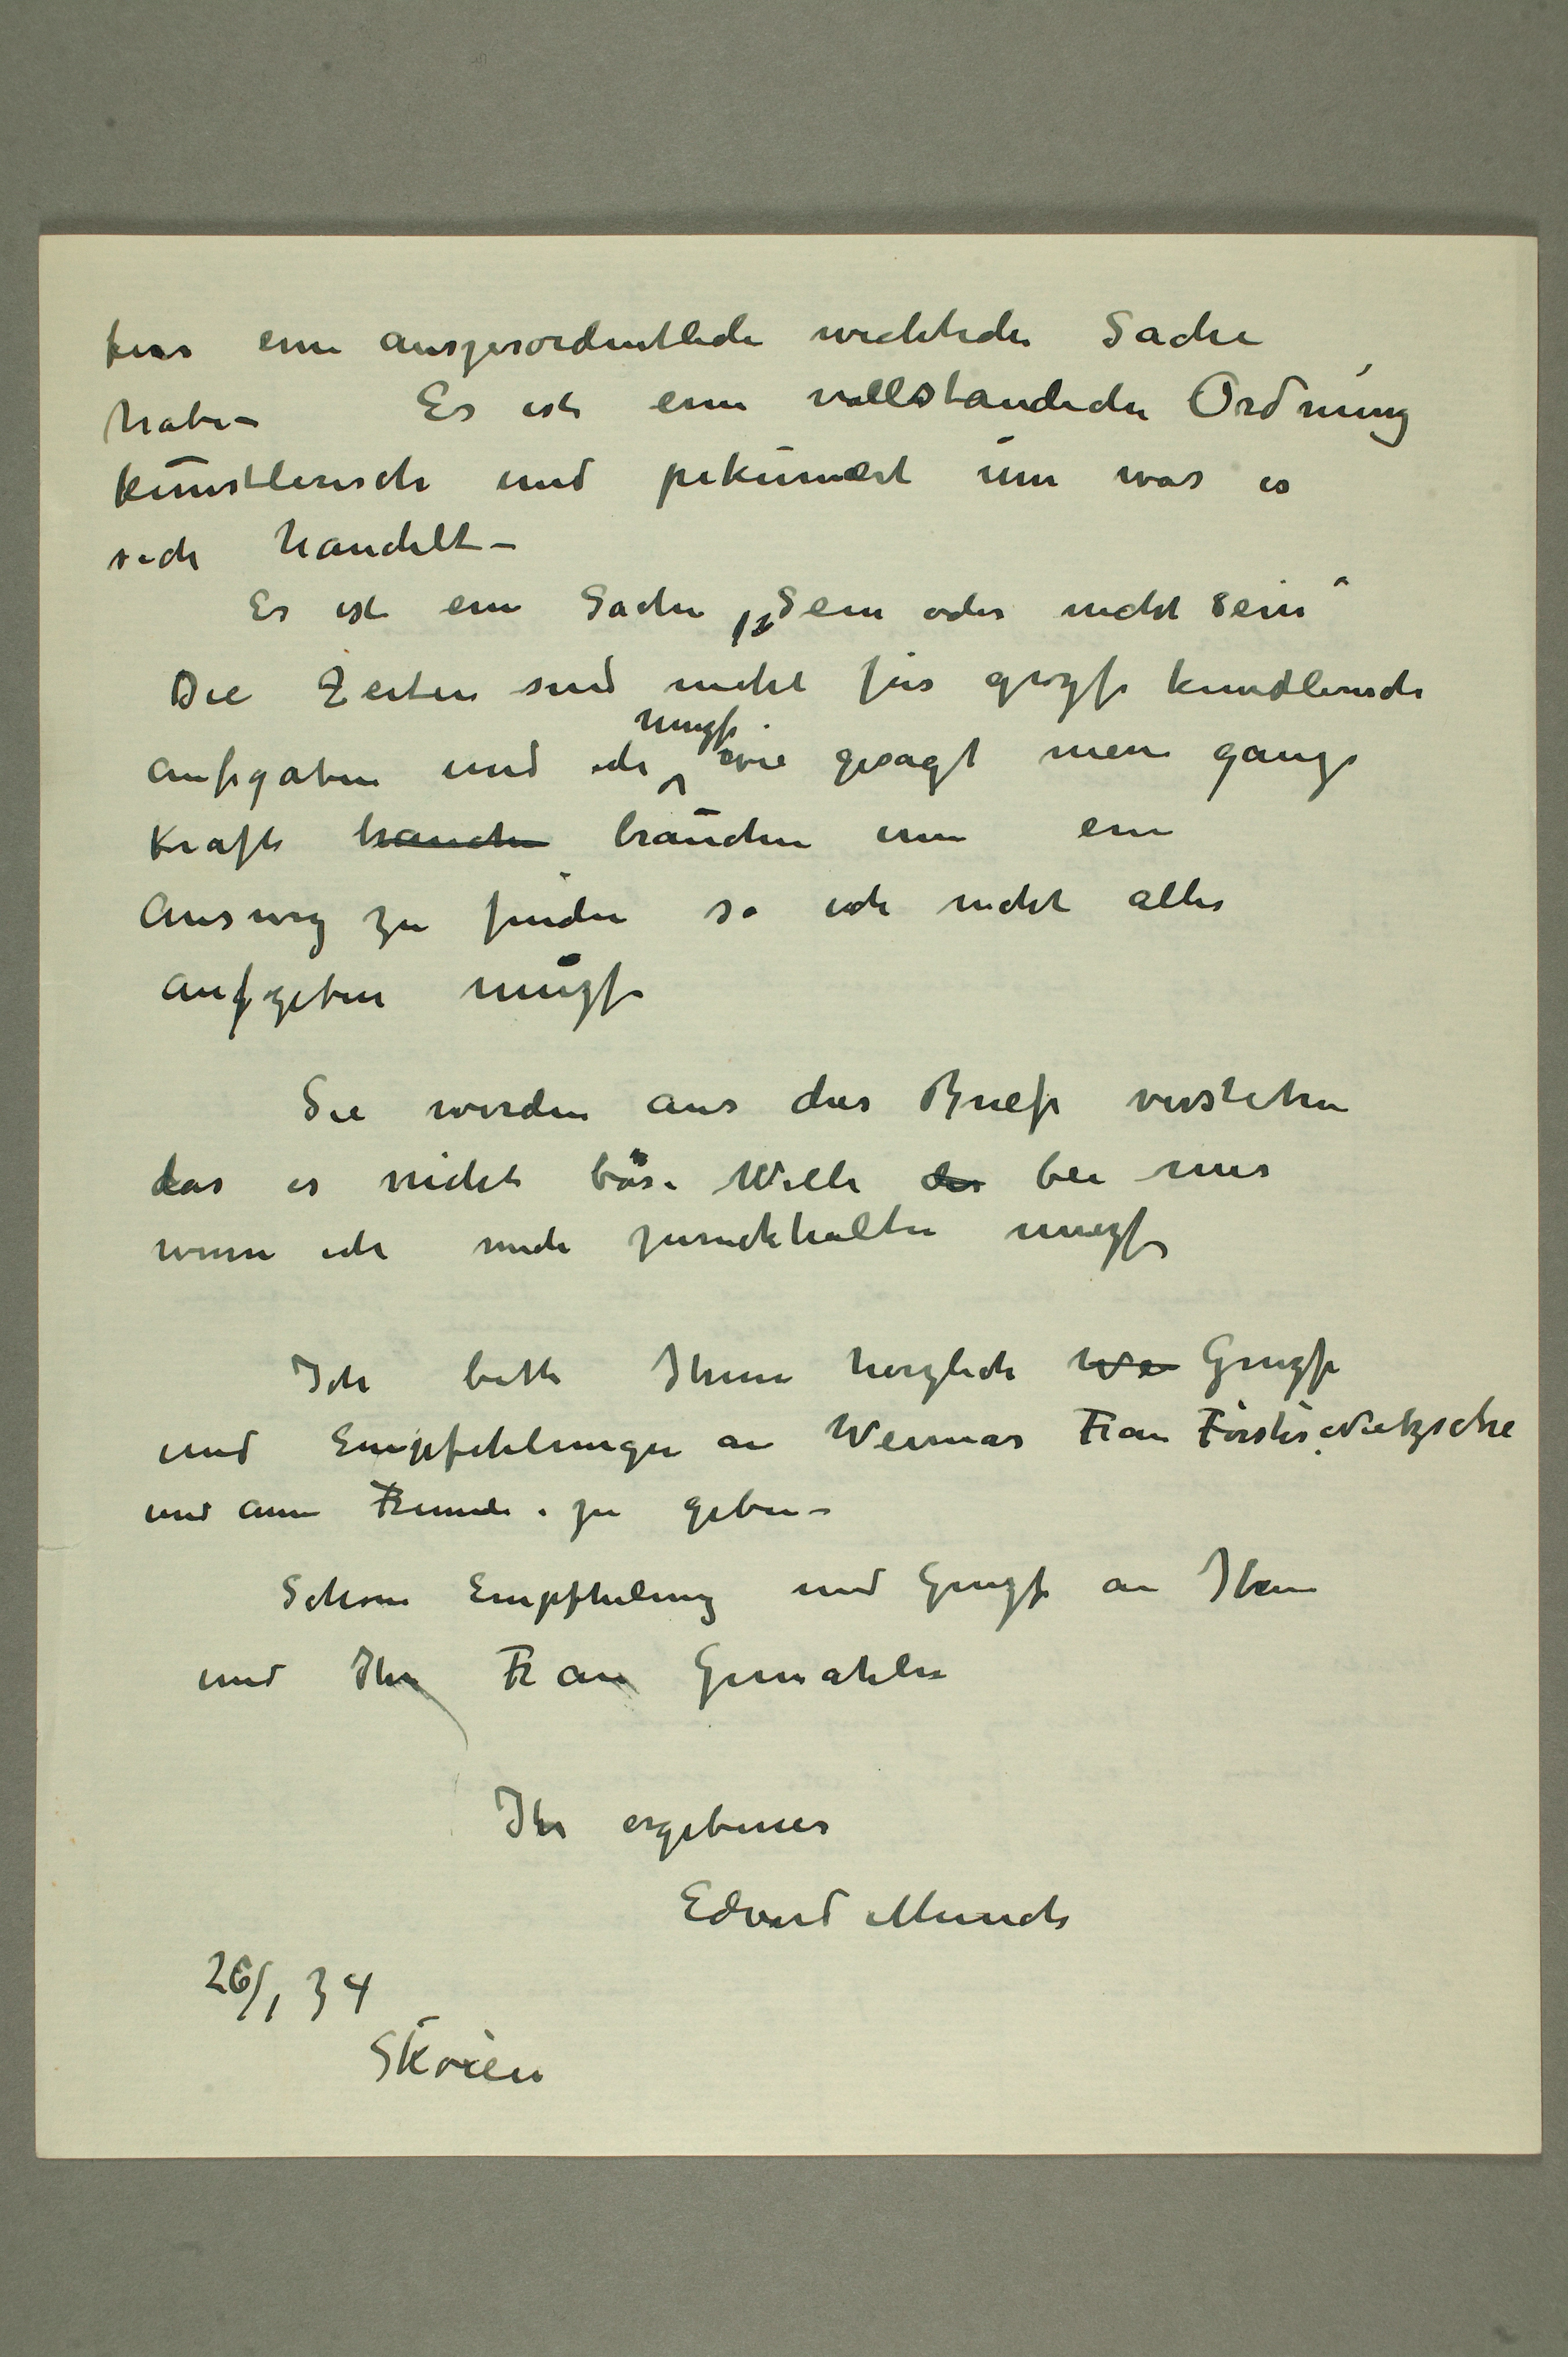 hier eine auszerordentliche wichtiche Sache
habe – Es ist eine vollständiche Ordnung
künstlerisch und pekuniært um was es
sich handelt –
Es ist eine Sache „Sein oder nicht sein“
Die Zeiten sind nicht für grosze kunstlerische
Aufgaben und ich musz wie gesagt meine ganze
Kraft brauchen brauchen um ein
Ausweg zu finden so ich nicht alles
aufgeben musz
Sie werden aus dies Briefe verstehen
das es nicht böse Wille der bei mir
wenn ich mich zurückhalten musz
Ich bitte Ihnen herzliche Grusze
und Empfehlungen an Weimar Frau Förster-Nietzsche
und Freunde zu geben –
Schöne Empfhelung und Grusz an Ihnen
und Ihre Frau Gemahlin
Ihr ergebener
Edvard Munch
26/1 34
Sköien